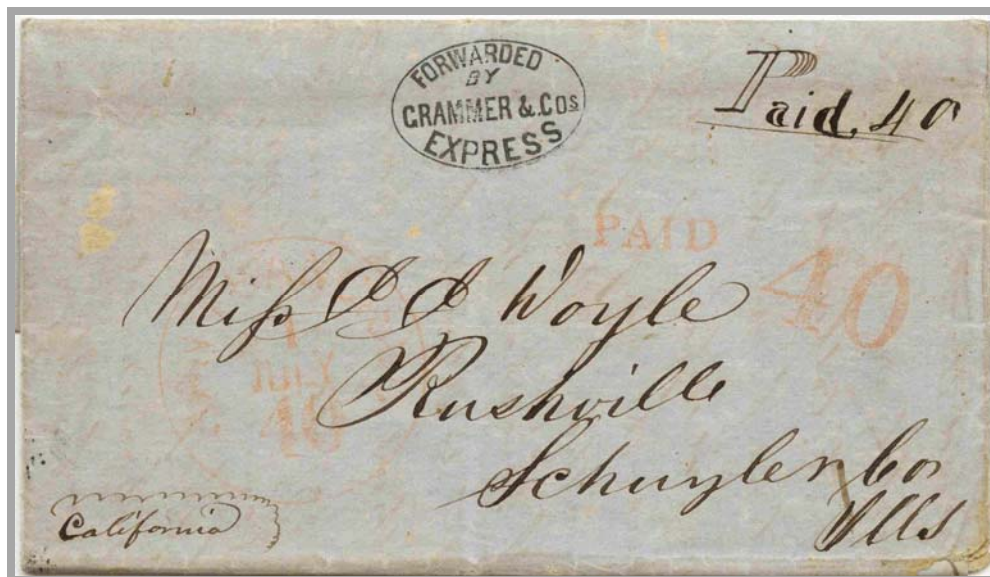 FORWARDED
BY
GRAMMER & COs
EXPRESS
Paid, 40
PAID
40
Miss
Woyle
Rushville
Schuyler Co
Ills
1
JULY
40
California